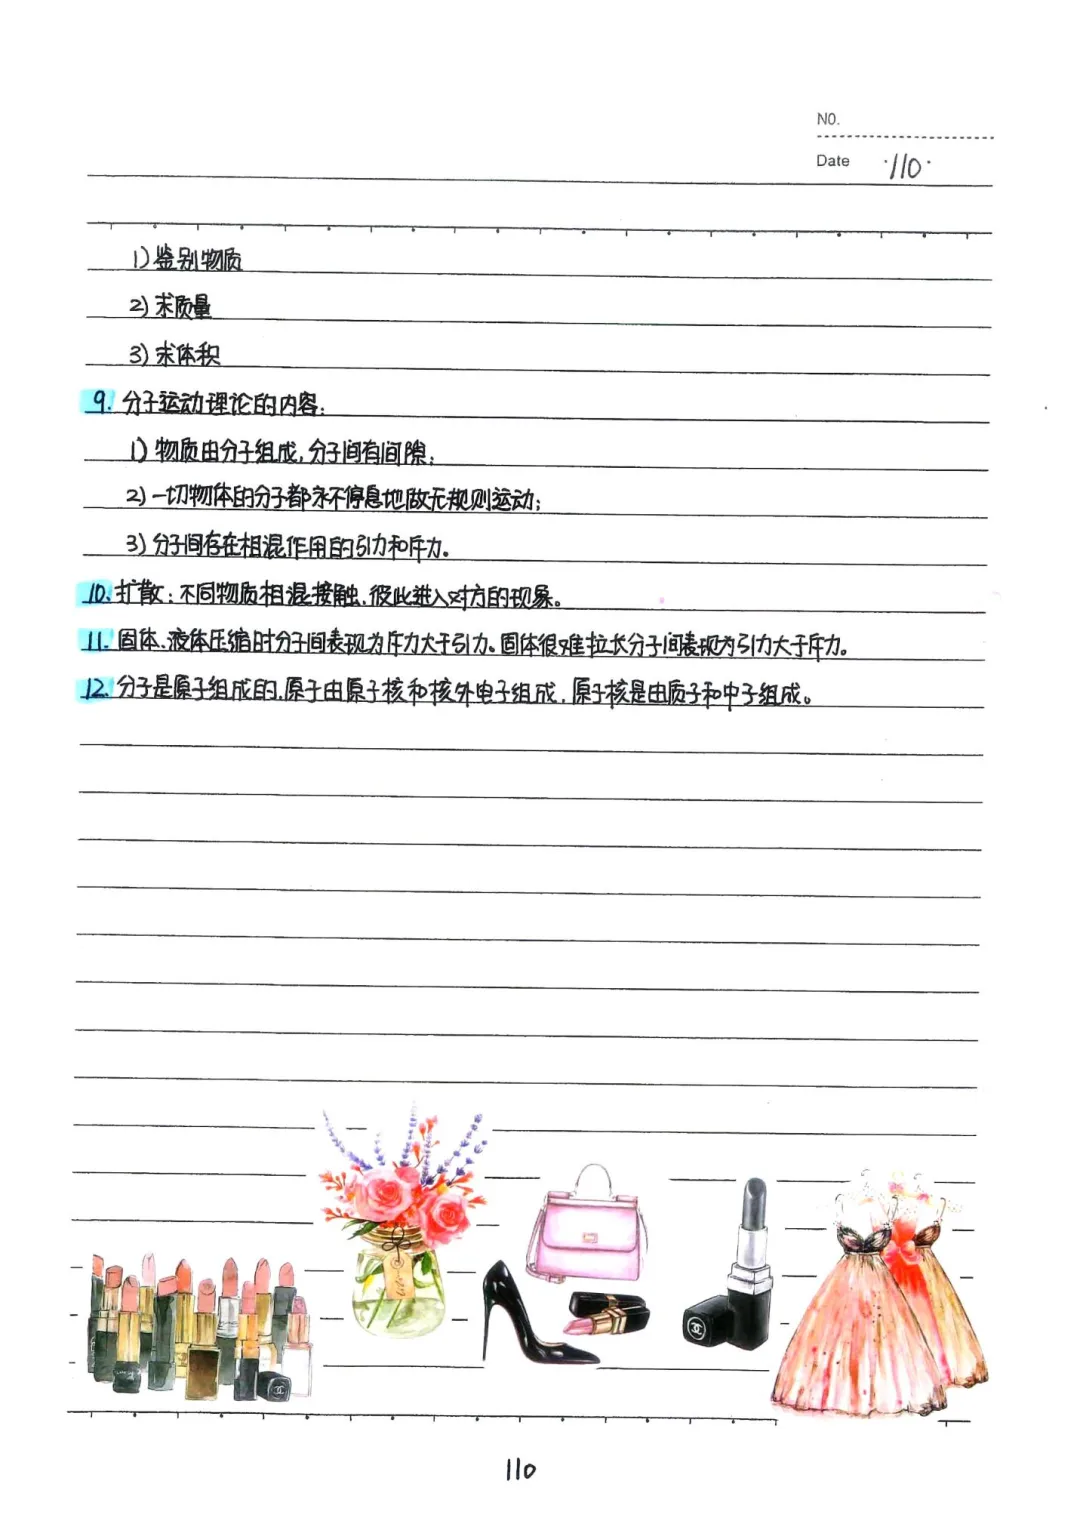 NO.
Date ·110·
1)鉴别物质
2)求质量
3)求体积
9. 分子运动理论的内容:
1)物质由分子组成,分子间有间隙;
2)一切物体的分子都永不停息地做无规则运动;
3)分子间存在相混作用的引力和斥力。
10.扩散:不同物质相混接触、彼此进入对方的现象。
11. 固体、液体压缩时分子间表现为斥力大于引力。固体很难拉长分子间表现为引力大于斥力。
12.分子是原子组成的,原子由原子核和核外电子组成,原子核是由质子和中子组成。
110